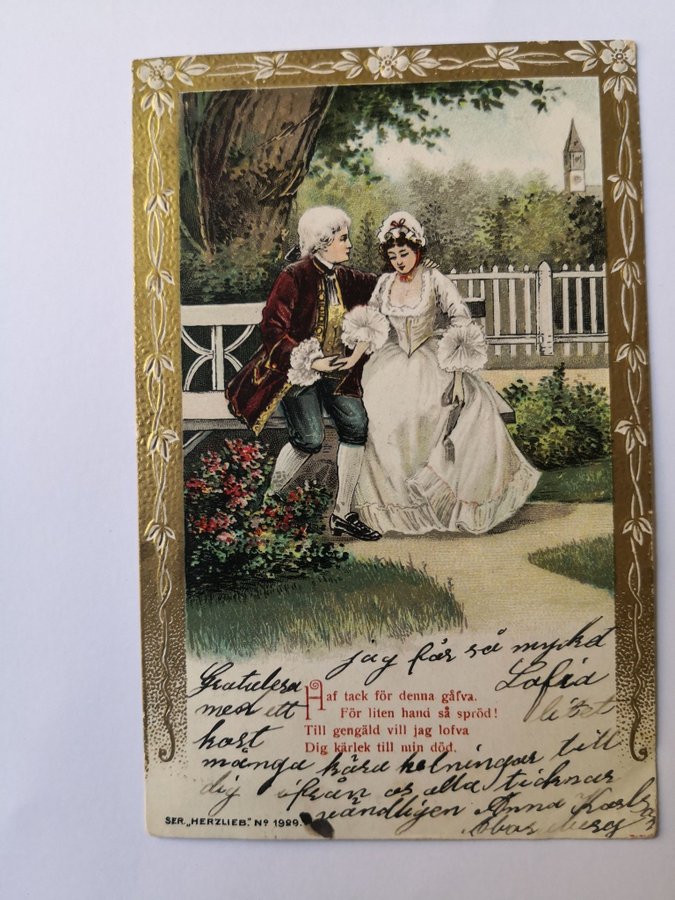 jag får så mycket
Gratulera Sofia
med ett litet
kort
Haf tack för denna gåfva.
För liten hand så spröd!
Till gengäld vill jag lofva
Dig kärlek till min död.
många kära helningar till
dig ifrån os alla ticknar
vändligen Anna
SER. „HERZLIEB.” No 1929.